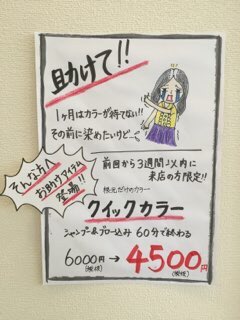 助けて!!
1ヶ月はカラーが待てない!!
その前に染めたいけどー
そんな方へ
お助けアイテム
登場!!
前回から3週間以内に
来店の方限定!!
根元だけのカラー
クイックカラー
シャンプー&ブロー込み 60分で終わる
6000円→4500円
(税抜) (税抜)